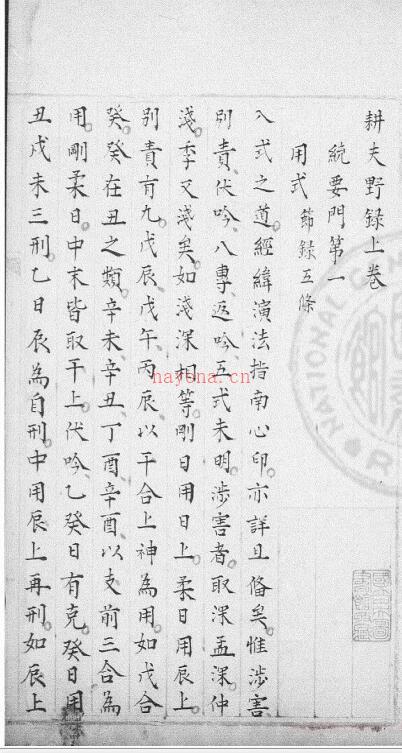 耕夫野録上卷
統要門第一
用式 節録五條
入式之道經緯演法指南心印亦詳且備矣惟涉害
別責伏吟八專返吟五式未明涉害者取深孟深仲
淺季又淺矣如淺深相等剛日用日上柔日用辰上
別責有九戊辰戊午丙辰以干合上神為用如戊合
癸癸在丑之類辛未辛丑丁酉辛酉以支前三合為
用剛柔日中末皆取干上伏吟乙癸日有克癸日用
丑戌未三刑乙日辰為自刑中用辰上再刑如辰上
nayona.cn
NATIONAL